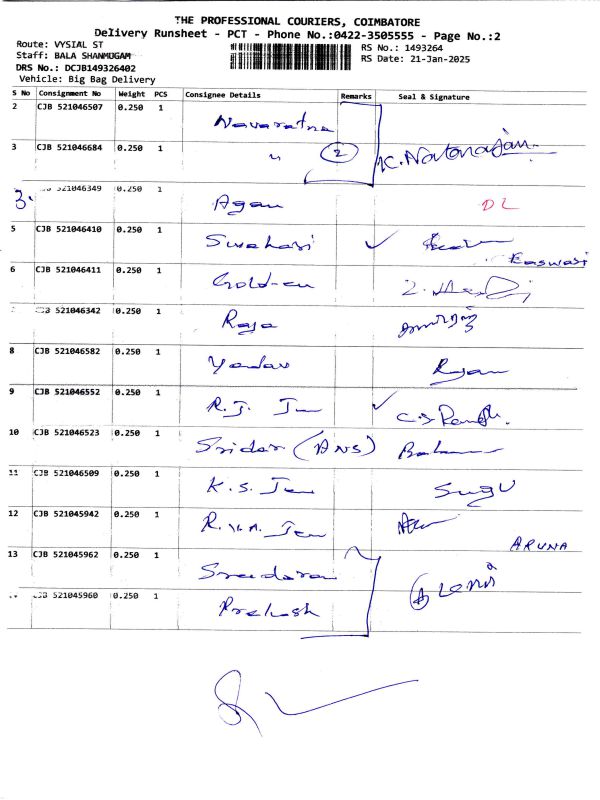 THE PROFESSIONAL COURIERS, COIMBATORE
Delivery Runsheet - PCT - Phone No.:0422-3505555 - Page No.:2
Route: VYSIAL ST
Staff: BALA SHANMUGAM
DRS No.: DCJB149326402
Vehicle: Big Bag Delivery
RS No.: 1493264
RS Date: 21-Jan-2025
S No Consignment No Weight PCS Consignee Details Remarks Seal & Signature
2 CJB 521046507 0.250 1 Navaratna
3 CJB 521046684 0.250 1 " 2 K. Natarajan
3. CJB 521046349 0.250 1 Agau DL
5 CJB 521046410 0.250 1 Swahasi ✓ Easwasi
6 CJB 521046411 0.250 1 Golden
CJB 521046342 0.250 1 Raja
8 CJB 521046582 0.250 1 Yadav Ryan
9 CJB 521046552 0.250 1 R. J. ✓
10 CJB 521046523 0.250 1 Sridar (ANS)
11 CJB 521046509 0.250 1 K. S. Sugu
12 CJB 521045942 0.250 1 ARUNA
13 CJB 521045962 0.250 1 Sreedaran
CJB 521045960 0.250 1 Prekash